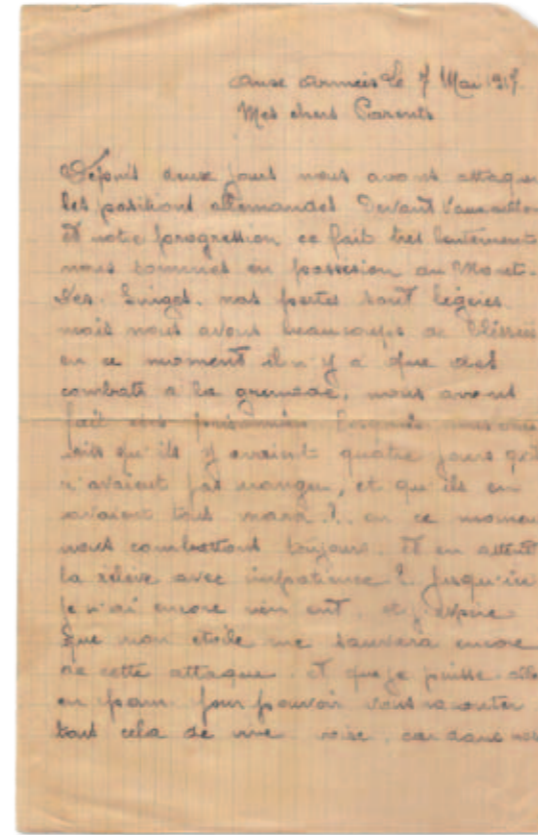 aux armeés le 7 Mai 1917.
Mes chers Parents
Depuis deux jours nous avons attaquer
les positions allemandes Devant
Et notre progression ce fait tres lentement
nous sommes en possesion du Mont-
Des- Singes. nos pertes sont légères
mais nous avons beaucoups de Blessés
en ce moment il n'y a que des
combats a la grenade, nous avons
fait des prisonniers lesquels
dits qu'ils y avaint quatre jours qu'il
n'avaient pas manger, et qu'ils en
avaient tous marre ?. en ce momen
nous combattons toujours. Et en attent
la relève avec impatience ?. Jusqu'ici
Je n'ai encore rien eut, et j'espère
Que mon etoile me sauvera encore
de cette attaque. et que je puisse alle
en perm. pour pouvoir vous raconter
tout cela de vive voix. car dans nos